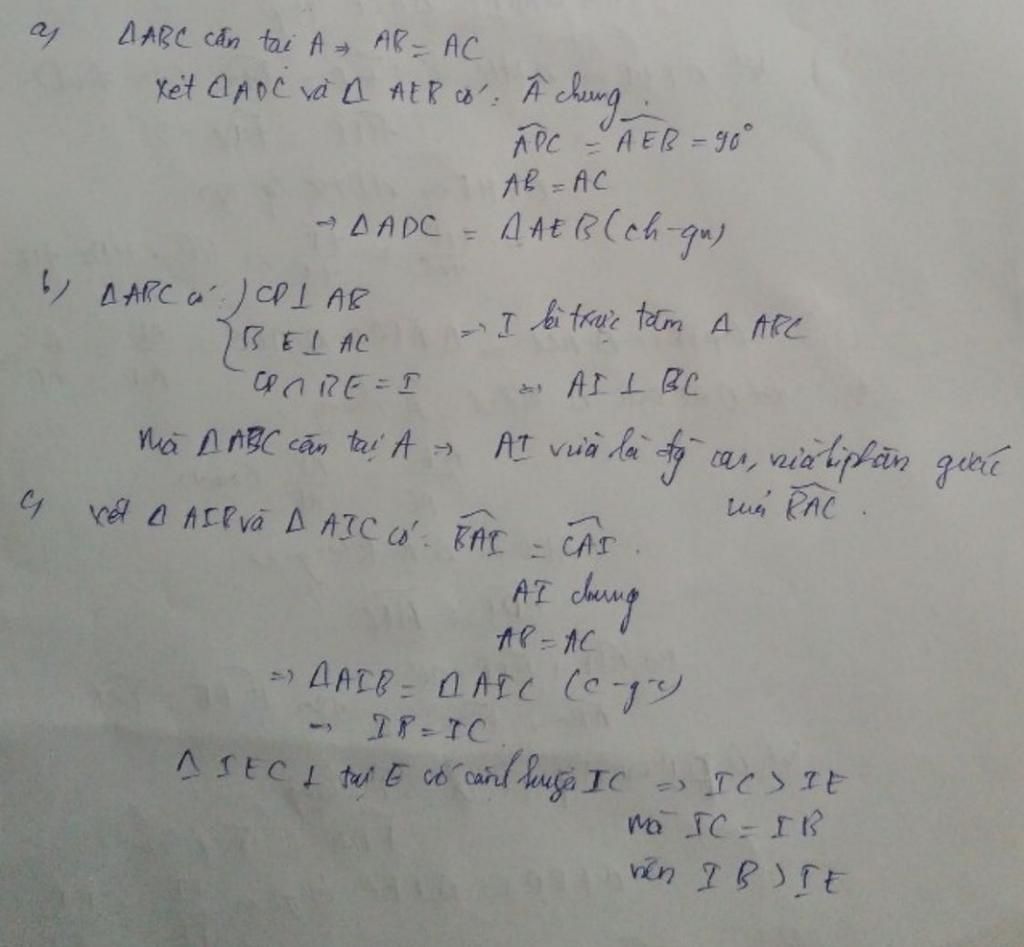 a) ΔABC cân tại A → AB = AC
Xét ΔADC và Δ AEB có: Â chung.
\widehat{ADC} = \widehat{AEB} = 90°
AB = AC
→ ΔADC = ΔAEB (ch-gn)
b) ΔABC có { CD ⊥ AB
BE ⊥ AC ⇒ I là trực tâm Δ ABC
CD ∩ BE = I ⇒ AI ⊥ BC
Mà ΔABC cân tại A → AI vừa là đg cao, vừa là phân giác
của \widehat{BAC}.
c) Xét Δ AIB và Δ AIC có: \widehat{BAI} = \widehat{CAI}.
AI chung
AB = AC
⇒ ΔAIB = ΔAIC (c-g-c)
→ IB = IC
Δ IEC ⊥ tại E có cạnh huyền IC ⇒ IC > IE
mà IC = IB
nên IB > IE